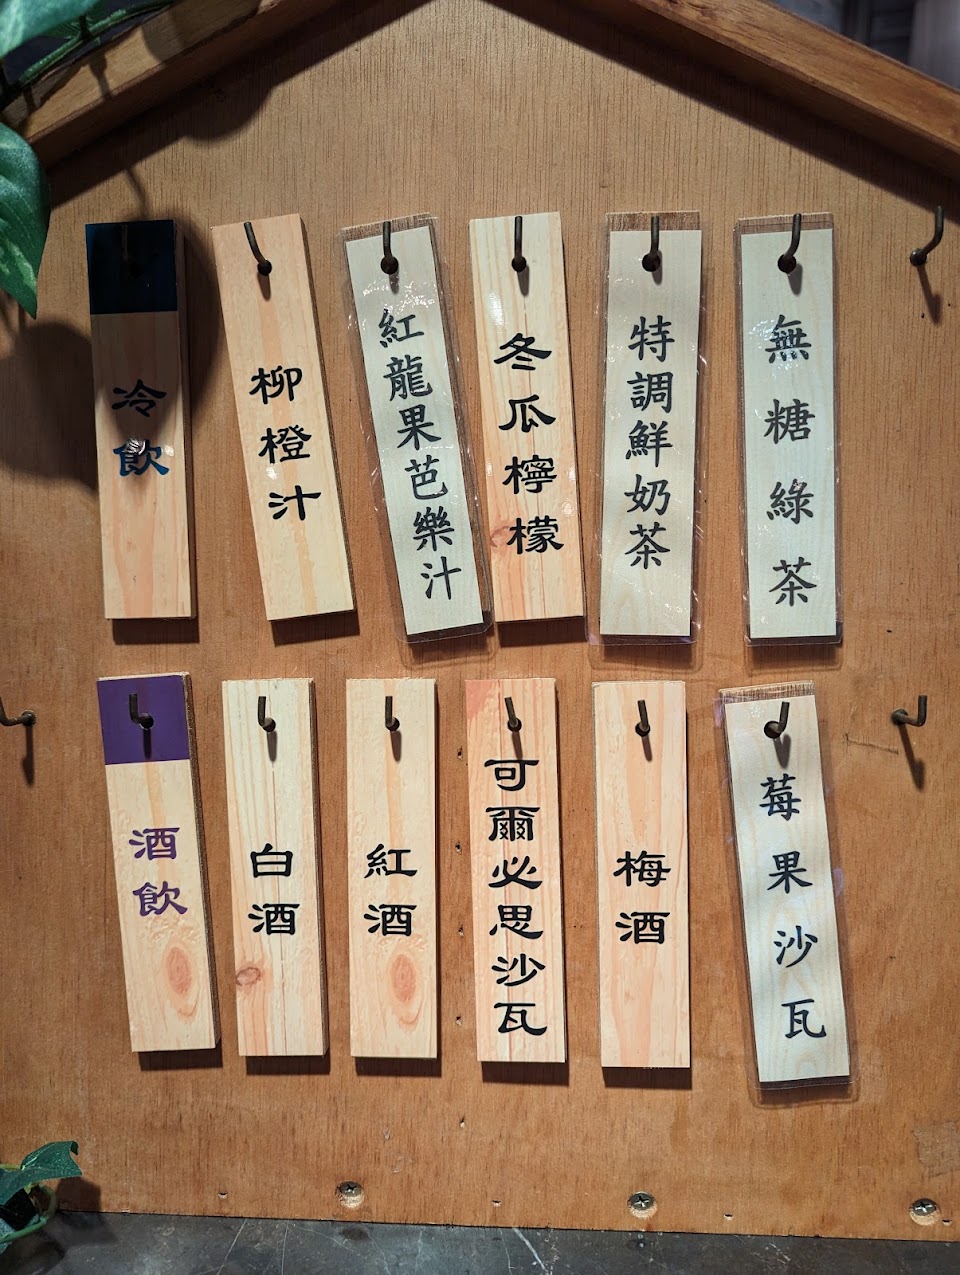 冷飲
柳橙汁
紅龍果芭樂汁
冬瓜檸檬
特調鮮奶茶
無糖綠茶
酒飲
白酒
紅酒
可爾必思沙瓦
梅酒
莓果沙瓦